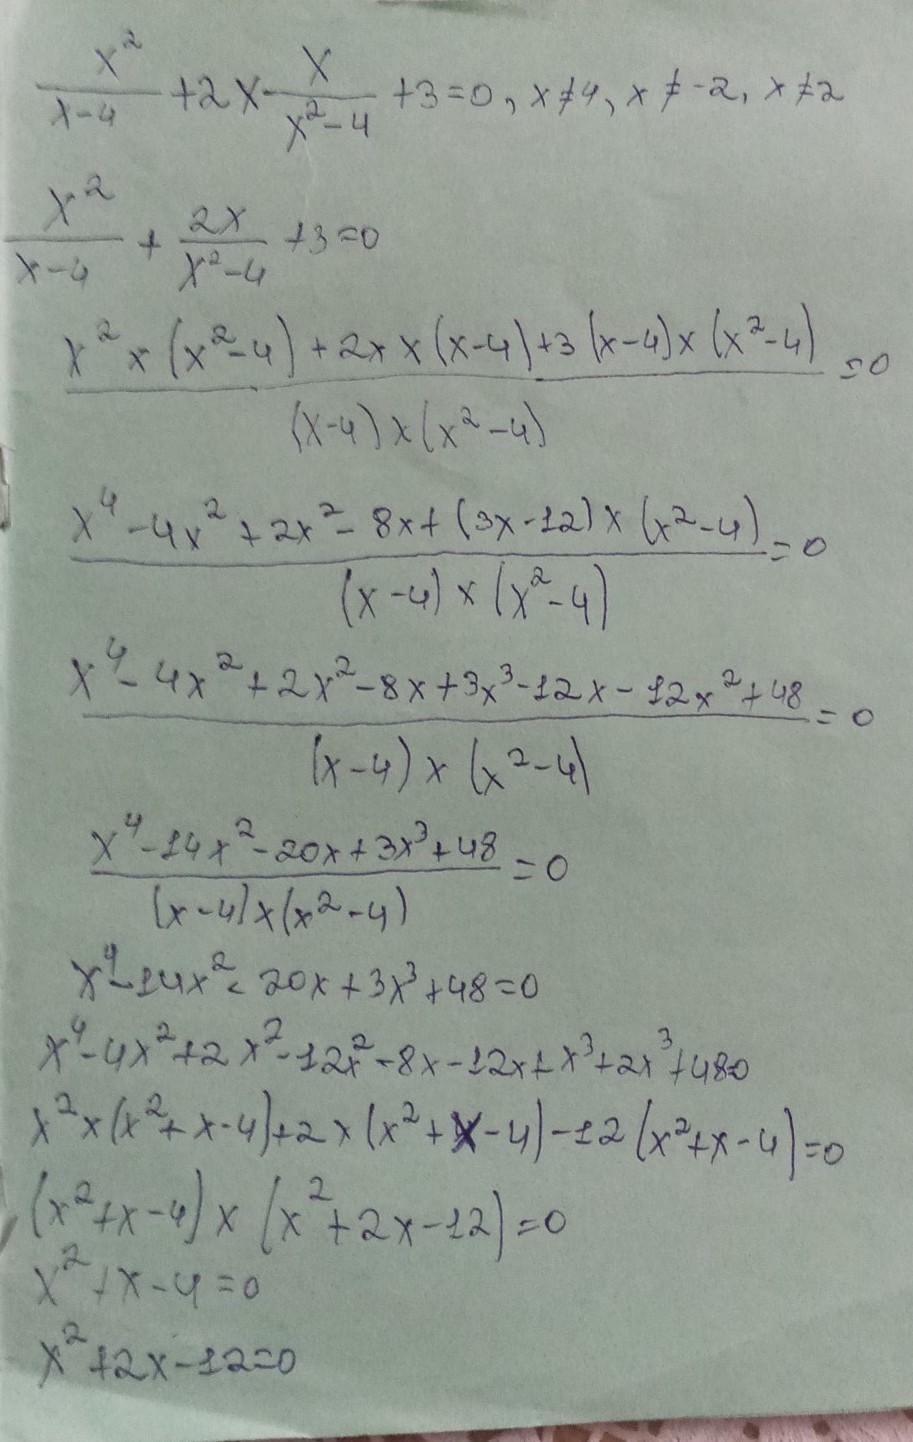 x²/(x-4) + 2x · x/(x²-4) + 3 = 0, x≠4, x≠-2, x≠2
x²/(x-4) + 2x/(x²-4) + 3 = 0
(x² × (x²-4) + 2x × (x-4) + 3(x-4) × (x²-4))/((x-4) × (x²-4)) = 0
(x⁴ - 4x² + 2x² - 8x + (3x-12) × (x²-4))/((x-4) × (x²-4)) = 0
(x⁴ - 4x² + 2x² - 8x + 3x³ - 12x - 12x² + 48)/((x-4) × (x²-4)) = 0
(x⁴ - 14x² - 20x + 3x³ + 48)/((x-4) × (x²-4)) = 0
x⁴ - 14x² - 20x + 3x³ + 48 = 0
x⁴ - 4x² + 2x² - 12x² - 8x - 12x + x³ + 2x³ + 48=0
x² × (x² + x - 4) + 2 × (x² + x - 4) - 12(x² + x - 4) = 0
(x² + x - 4) × (x² + 2x - 12) = 0
x² + x - 4 = 0
x² + 2x - 12 = 0